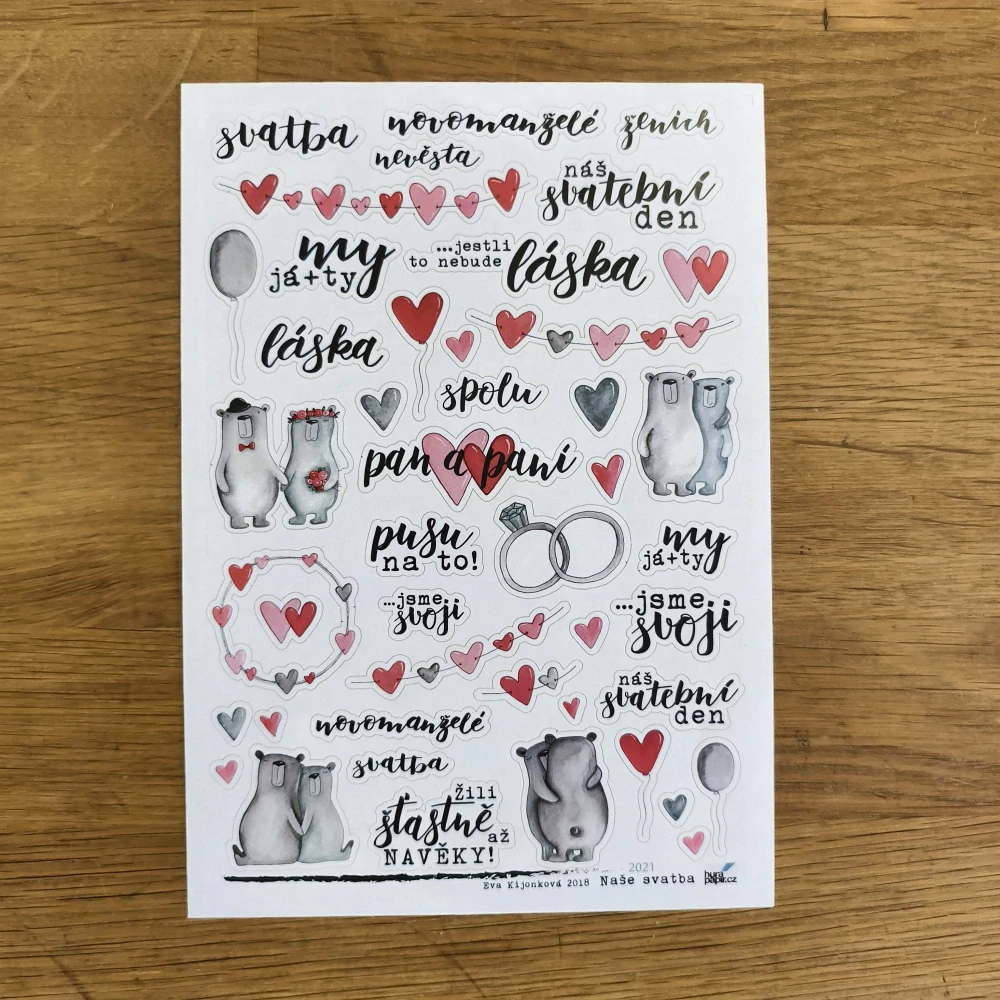 svatba novomanželé ženich
nevěsta
náš
svatební
den
my
já+ty
...jestli
to nebude
láska
láska
spolu
pan a paní
pusu
na to!
my
já+ty
...jsme
svoji
...jsme
svoji
náš
svatební
den
novomanželé
svatba
žili
šťastně
až
NAVĚKY!
2021
Eva Kijonková 2018 Naše svatba hurá
papír.cz